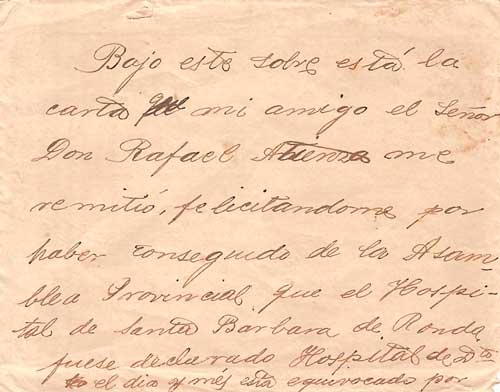 Bajo este sobre está la
carta que mi amigo el Señor
Don Rafael Atienza me
remitió, felicitandome por
haber conseguido de la Asam-
blea Provincial que el Hospi-
tal de Santa Barbara de Ronda
fuese declarado Hospital de Dto
el dia y més esta equivocado por